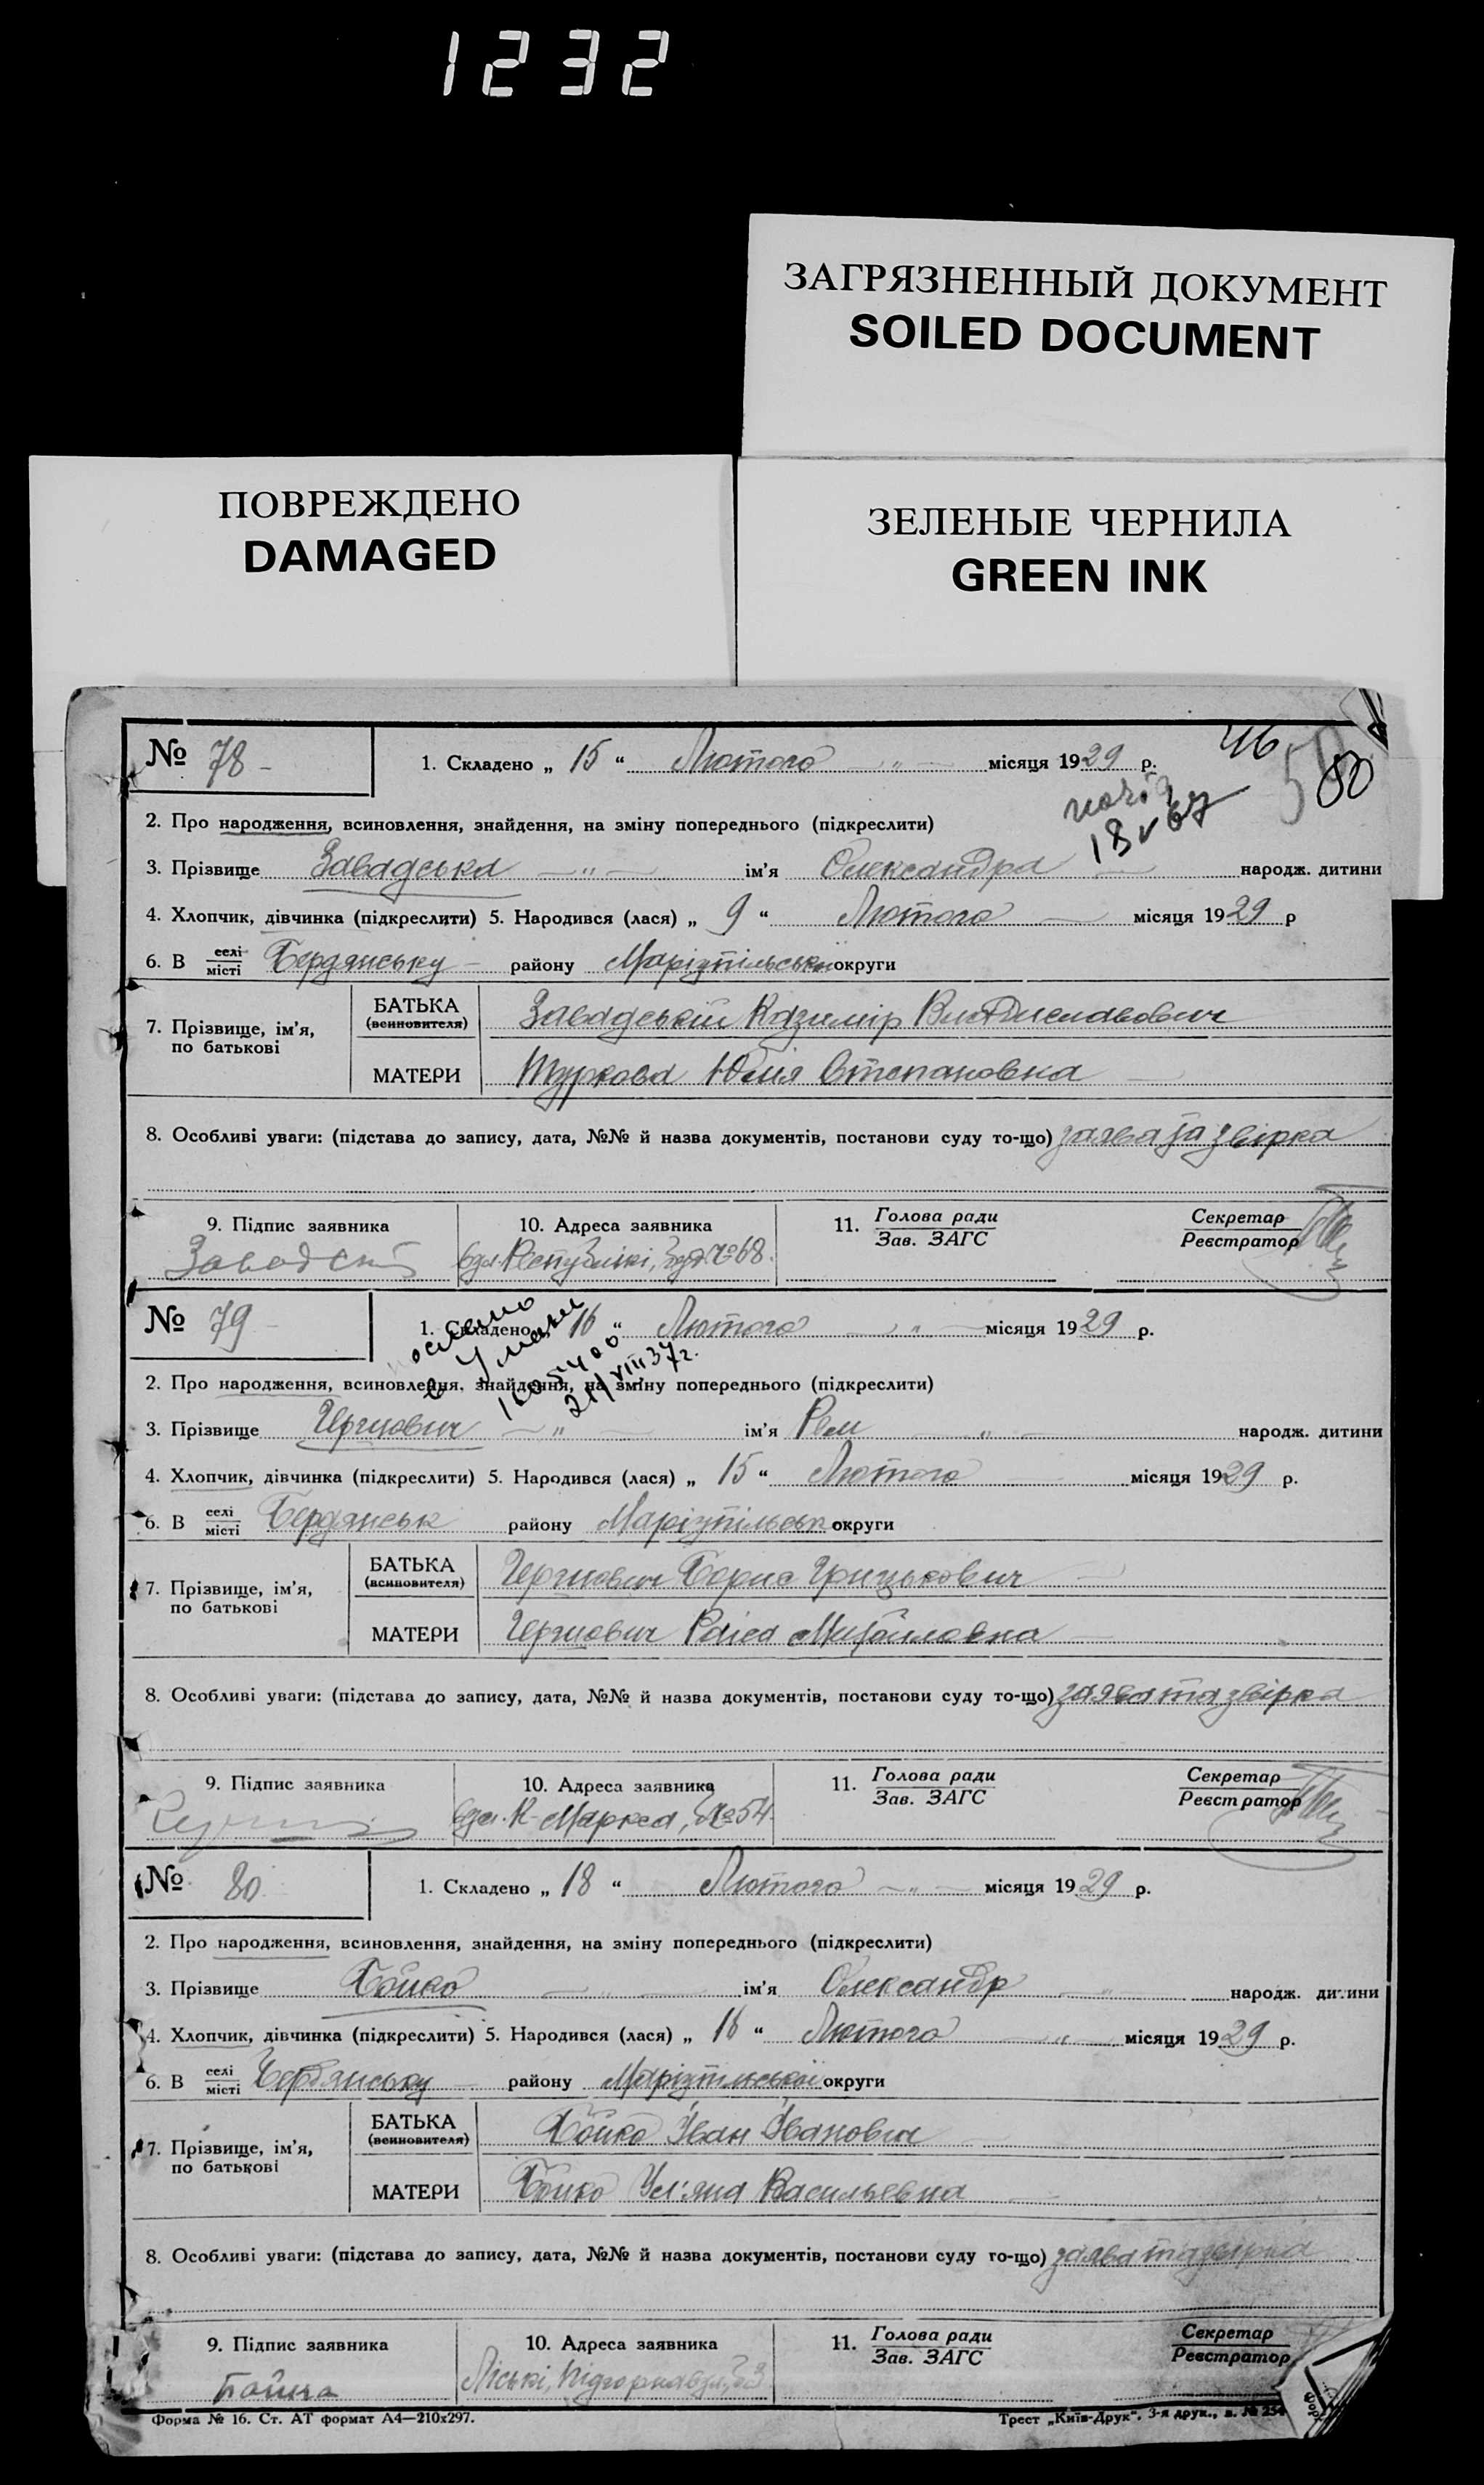 1232
ЗАГРЯЗНЕННЫЙ ДОКУМЕНТ
SOILED DOCUMENT
ПОВРЕЖДЕНО
DAMAGED
ЗЕЛЕНЫЕ ЧЕРНИЛА
GREEN INK
46
80
№ 78 -
1. Складено „ 15 “ Лютого місяця 1929 р.
18 V 67
2. Про народження, всиновлення, знайдення, на зміну попереднього (підкреслити)
3. Прізвище Завадська — „ — ім'я Олександра народж. дитини
4. Хлопчик, дівчинка (підкреслити) 5. Народився (лася) „ 9 “ Лютого місяця 1929 р
6. В селі місті Бердянську району Маріупільської округи
7. Прізвище, ім'я, по батькові
БАТЬКА (всиновителя) Завадський Казимір Владиславович
МАТЕРИ Туркова Юлія Степановна
8. Особливі уваги: (підстава до запису, дата, №№ й назва документів, постанови суду то-що) заява та звірка
9. Підпис заявника 10. Адреса заявника 11. Голова ради Зав. ЗАГС Секретар Реєстратор
Завадский вул. Республікі, буд. № 68.
№ 79 -
1. Складено „ 16 “ Лютого — „ — місяця 1929 р.
послано
в Умань
21/VIII 37 г.
2. Про народження, всиновлення, знайдення, на зміну попереднього (підкреслити)
3. Прізвище — „ — ім'я Рем — „ — народж. дитини
4. Хлопчик, дівчинка (підкреслити) 5. Народився (лася) „ 15 “ Лютого місяця 1929 р.
6. В селі місті Бердянськ району Маріупільськ округи
7. Прізвище, ім'я, по батькові
БАТЬКА (всиновителя) Борис Грицькович
МАТЕРИ Раіса Михайловна
8. Особливі уваги: (підстава до запису, дата, №№ й назва документів, постанови суду то-що) заява та звірка
9. Підпис заявника 10. Адреса заявника 11. Голова ради Зав. ЗАГС Секретар Реєстратор
вул. К-Маркса, № 54.
№ 80
1. Складено „ 18 “ Лютого — „ — місяця 1929 р.
2. Про народження, всиновлення, знайдення, на зміну попереднього (підкреслити)
3. Прізвище Бойко — „ — ім'я Олександр народж. дитини
4. Хлопчик, дівчинка (підкреслити) 5. Народився (лася) „ 16 “ Лютого — „ — місяця 1929 р.
6. В селі місті Бердянську району Маріупільської округи
7. Прізвище, ім'я, по батькові
БАТЬКА (всиновителя) Бойко Іван Іванович
МАТЕРИ Бойко Ул'яна Васильевна
8. Особливі уваги: (підстава до запису, дата, №№ й назва документів, постанови суду то-що) заява та звірка
9. Підпис заявника 10. Адреса заявника 11. Голова ради Зав. ЗАГС Секретар Реєстратор
Ліскі,
Форма № 16. Ст. АТ формат А4—210х297.
Трест „Київ-Друк“. 3-я друк., з. № 254